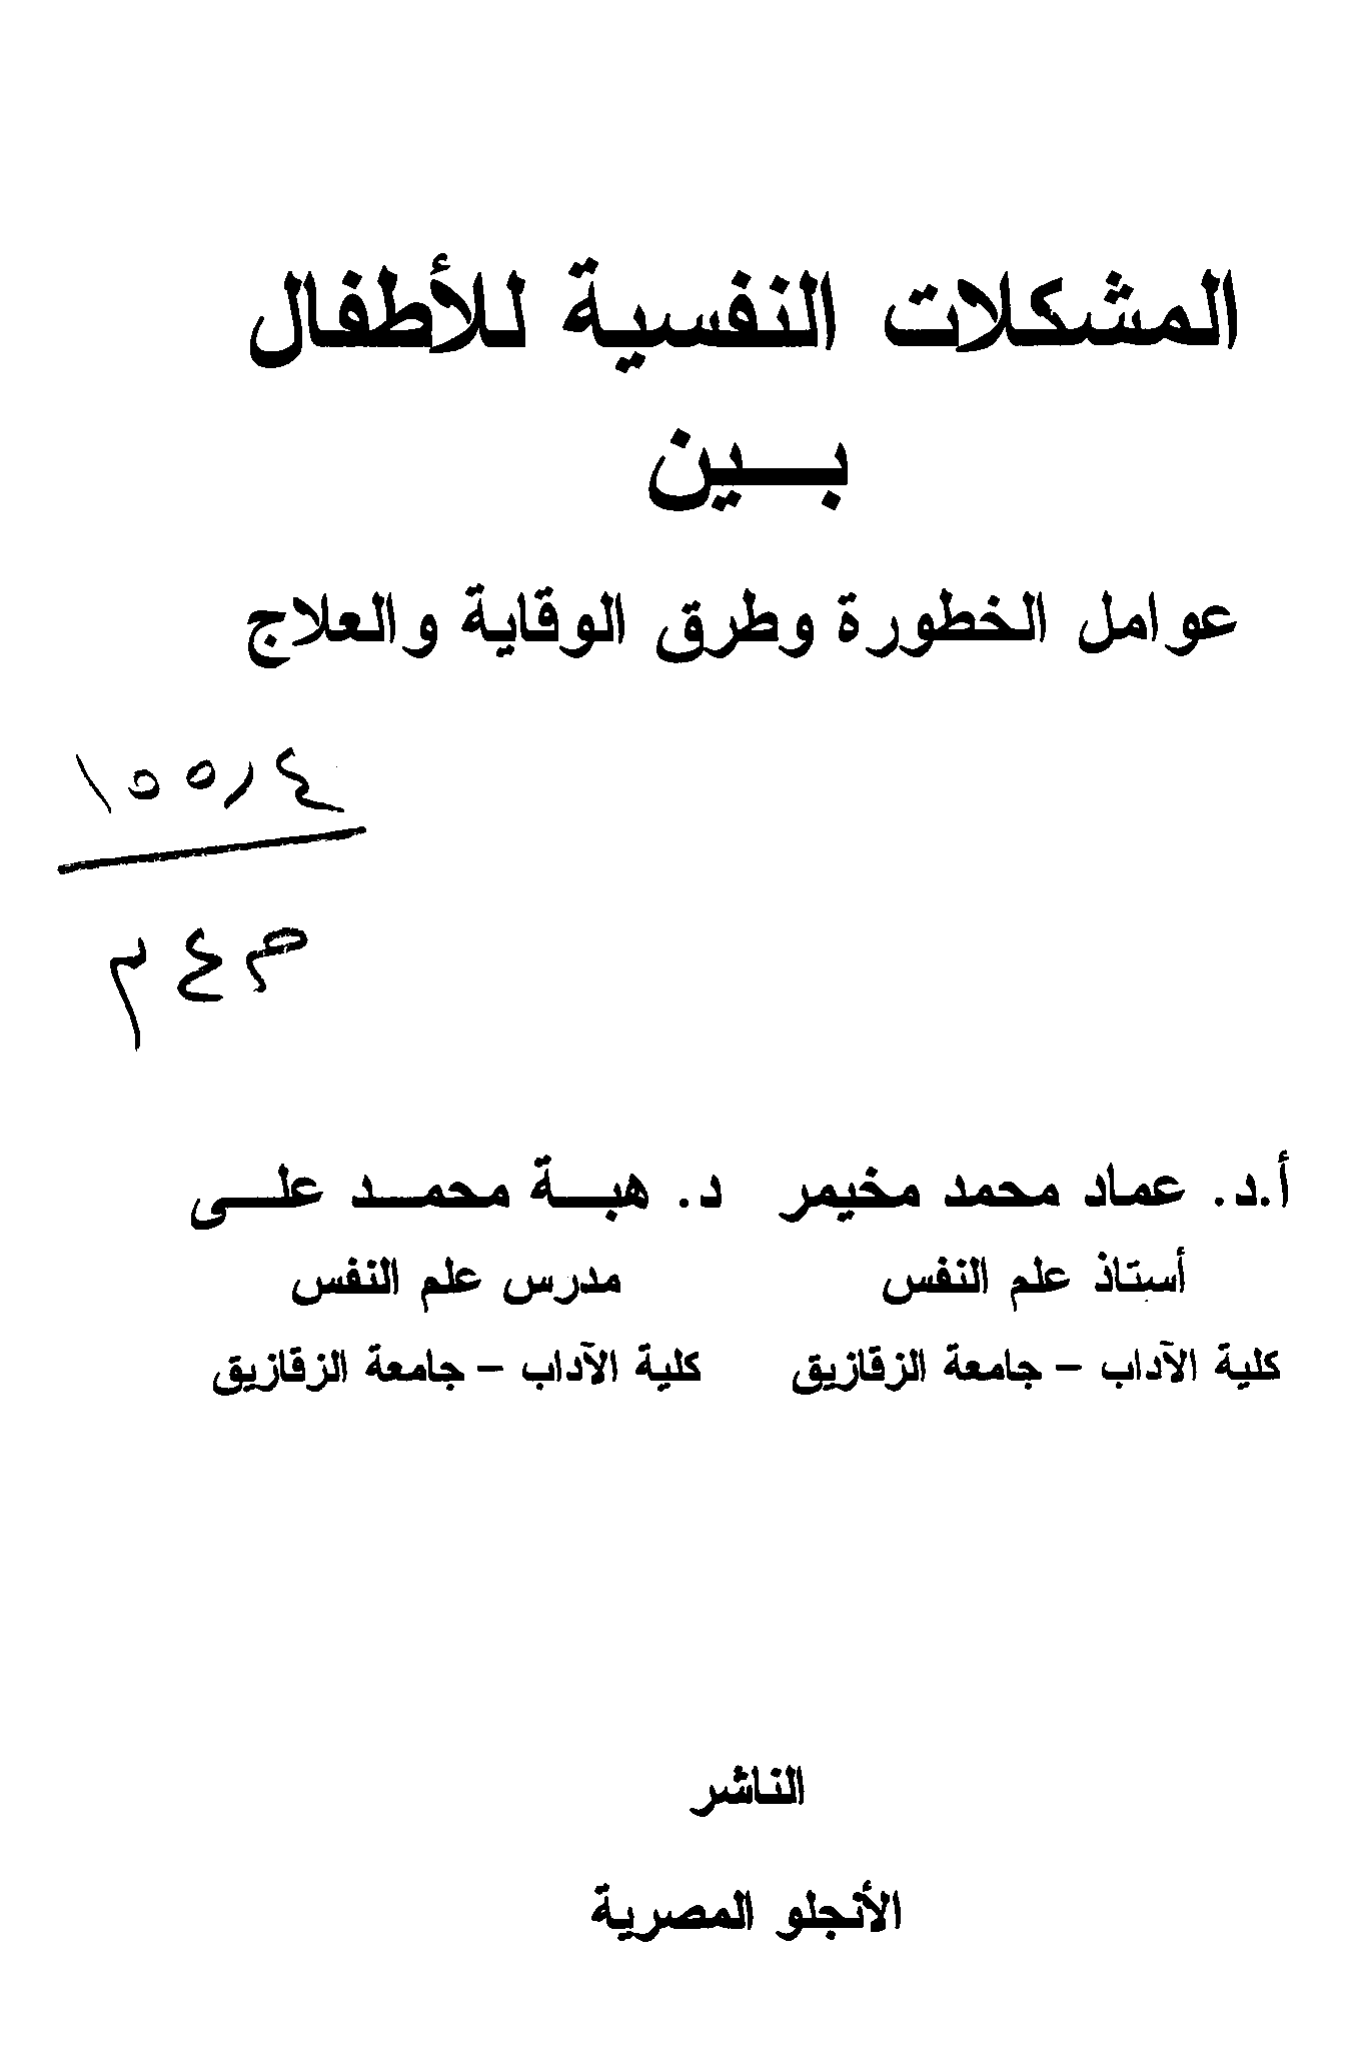 المشكلات النفسية للأطفال
بـــين
عوامل الخطورة وطرق الوقاية والعلاج
١٥٥٫٤
أ.د. عماد محمد مخيمر
أستاذ علم النفس
كلية الآداب – جامعة الزقازيق
د. هبـــة محمـــد علـــى
مدرس علم النفس
كلية الآداب – جامعة الزقازيق
الناشر
الأنجلو المصرية